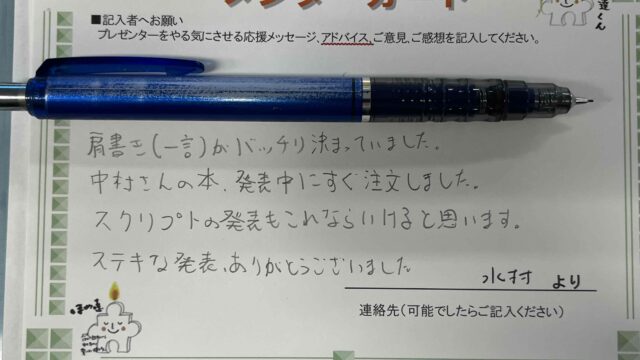 ■記入者へお願い
プレゼンターをやる気にさせる応援メッセージ、アドバイス、ご意見、ご感想を記入してください。
肩書き(一言)がバッチリ決まっていました。
中村さんの本、発表中にすぐ注文しました。
スクリプトの発表もこれならいけると思います。
ステキな発表、ありがとうございました
水村 より
連絡先(可能でしたらご記入ください)